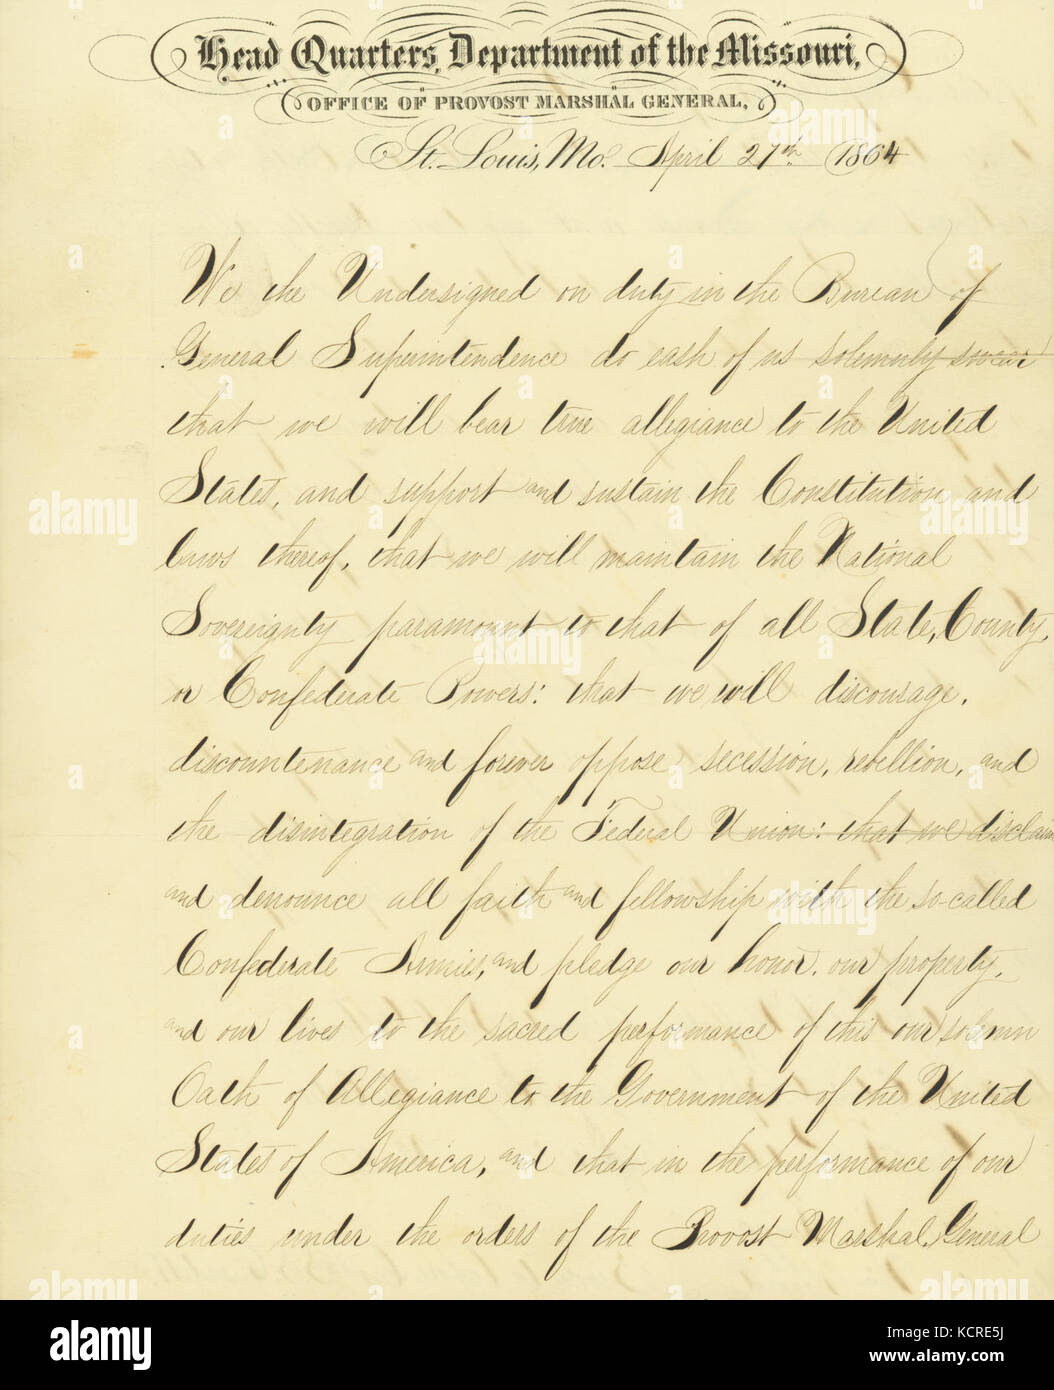 Head Quarters, Department of the Missouri,
OFFICE OF PROVOST MARSHAL GENERAL,
St. Louis, Mo. April 27th 1864
We the Undersigned on duty in the Bureau of
General Superintendence do each of us solemnly swear
that we will bear true allegiance to the United
States, and support and sustain the Constitution and
laws thereof, that we will maintain the National
Sovereignty paramount to that of all State, County,
or Confederate Powers: that we will discourage,
discountenance and forever oppose secession, rebellion, and
the disintegration of the Federal Union: that we disclaim
and denounce all faith and fellowship with the so-called
Confederate Armies, and pledge our honor, our property,
and our lives to the sacred performance of this our solemn
Oath of Allegiance to the Government of the United
States of America, and that in the performance of our
duties under the orders of the Provost Marshal, General
alamy
Image ID: KCRE5J
www.alamy.com